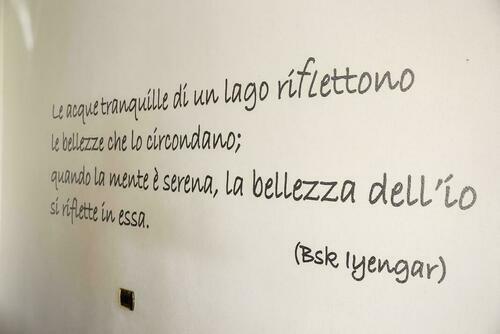 Le acque tranquille di un lago riflettono
le bellezze che lo circondano;
quando la mente è serena, la bellezza dell'io
si riflette in essa.
(Bsk Iyengar)